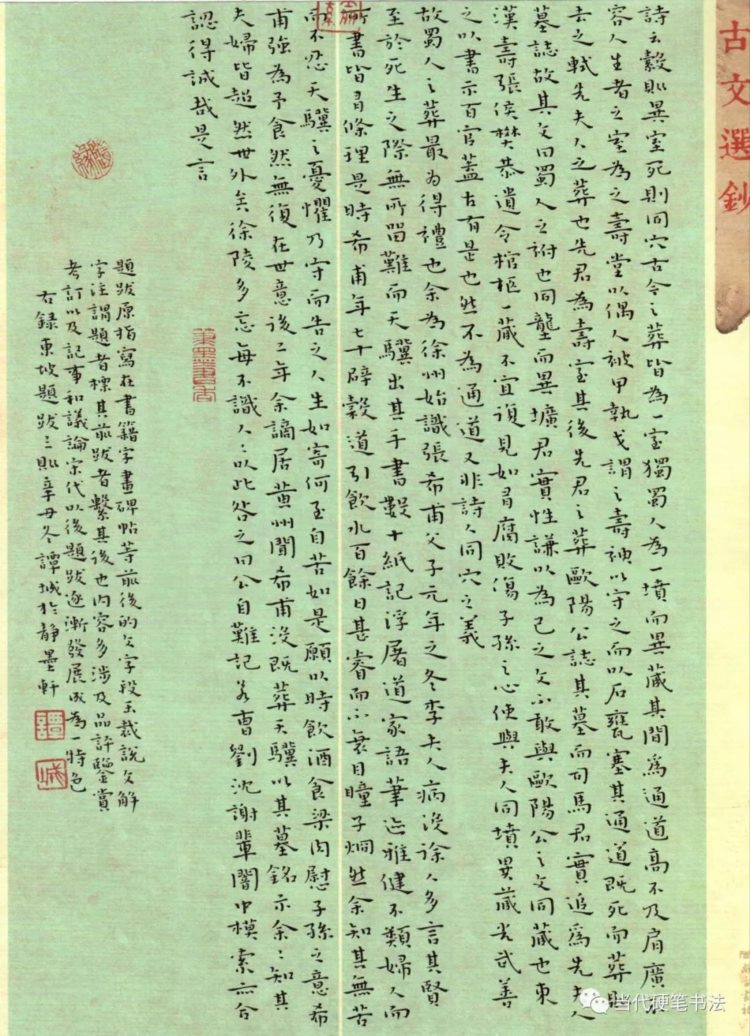 古文選鈔
詩云穀則異室死則同穴古今之葬皆為一室獨蜀人為一墳而異藏其間為通道高不及肩廣不
容人生者之室為之壽堂以偶人被甲執戈謂之壽神以守之而以石甕塞其通道既死而葬則
去之軾先夫人之葬也先君為壽室其後先君之葬歐陽公誌其墓而司馬君實追為先夫人
墓誌故其文曰蜀人之祔也同壟而異壙君實性謙以為己之文不敢與歐陽公之文同藏也東
漢壽張侯樊恭遺令棺柩一藏不宜復見如有腐敗傷子孫之心使與夫人同墳異藏光武善
之以書示百官蓋古有是也然不為通道又非詩人同穴之義
故蜀人之葬最為得禮也余為徐州始識張希甫父子元年之冬李夫人病沒徐人多言其賢
至於死生之際無所留難而天驥出其手書數十紙記浮屠道家語筆迹雅健不類婦人而
所書皆有條理是時希甫年七十辟穀道引飲水百餘日甚睿而不衰目瞳子炯然余知其無苦
而不忍天驥之憂懼乃守而告之人生如寄何至自苦如是願以時飲酒食粱肉慰子孫之意希
甫強為予食然無復在世意後二年余謫居黃州聞希甫沒既葬天驥以其墓銘示余〻知其
夫婦皆超然世外矣徐陵多忘每不識人〻以此咎之曰公自難記若曹劉沈謝輩闇中模索亦合
認得誠哉是言
題跋原指寫在書籍字畫碑帖等前後的文字段玉裁說文解
字注謂題者標其前跋者繫其後也內容多涉及品評鑒賞
考訂以及記事和議論宋代以後題跋逐漸發展成為一特色
右錄東坡題跋三則辛丑冬譚城於靜墨軒
譚
城
当代硬笔书法